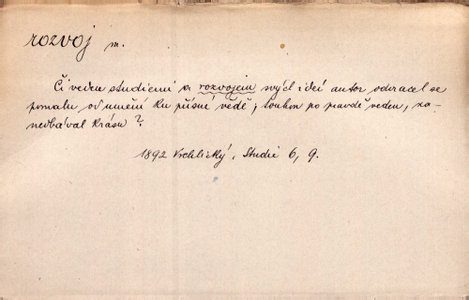 rozvoj m.
Či veden studiemi a rozvojem svých ideí autor odvracel se
pomalu od umění ku přísné vědě; touhou po pravdě veden, za-
nedbával krásu?
1892 Vrchlický, Studie 6, 9.